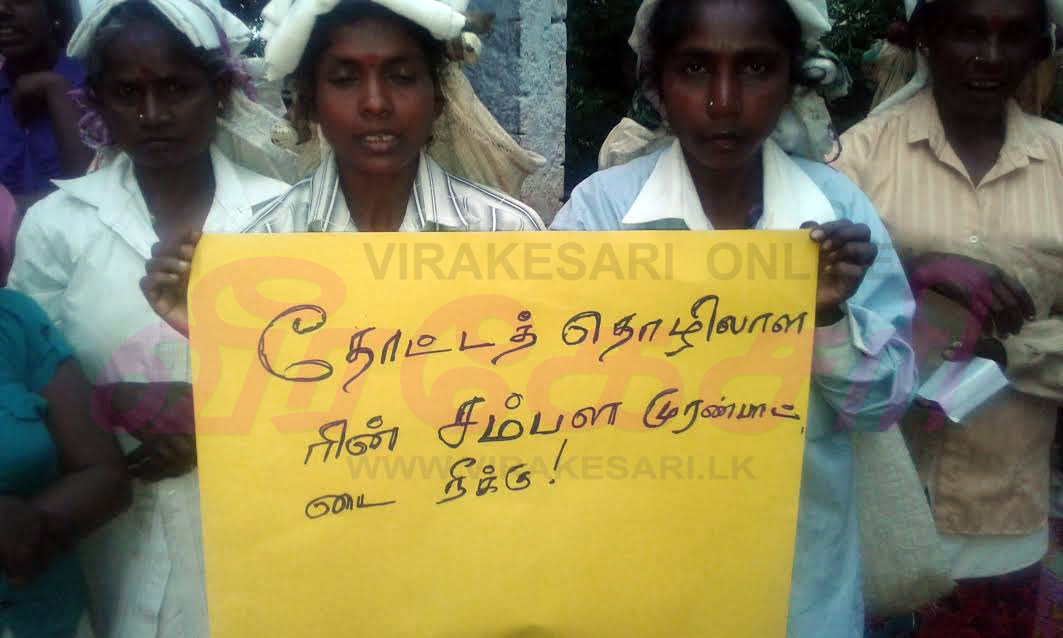 VIRAKESARI ONLINE
வீரகேசரி
தோட்டத் தொழிலாள
ரின் சம்பள முரண்பாட்
டை நீக்கு!
WWW.VIRAKESARI.LK